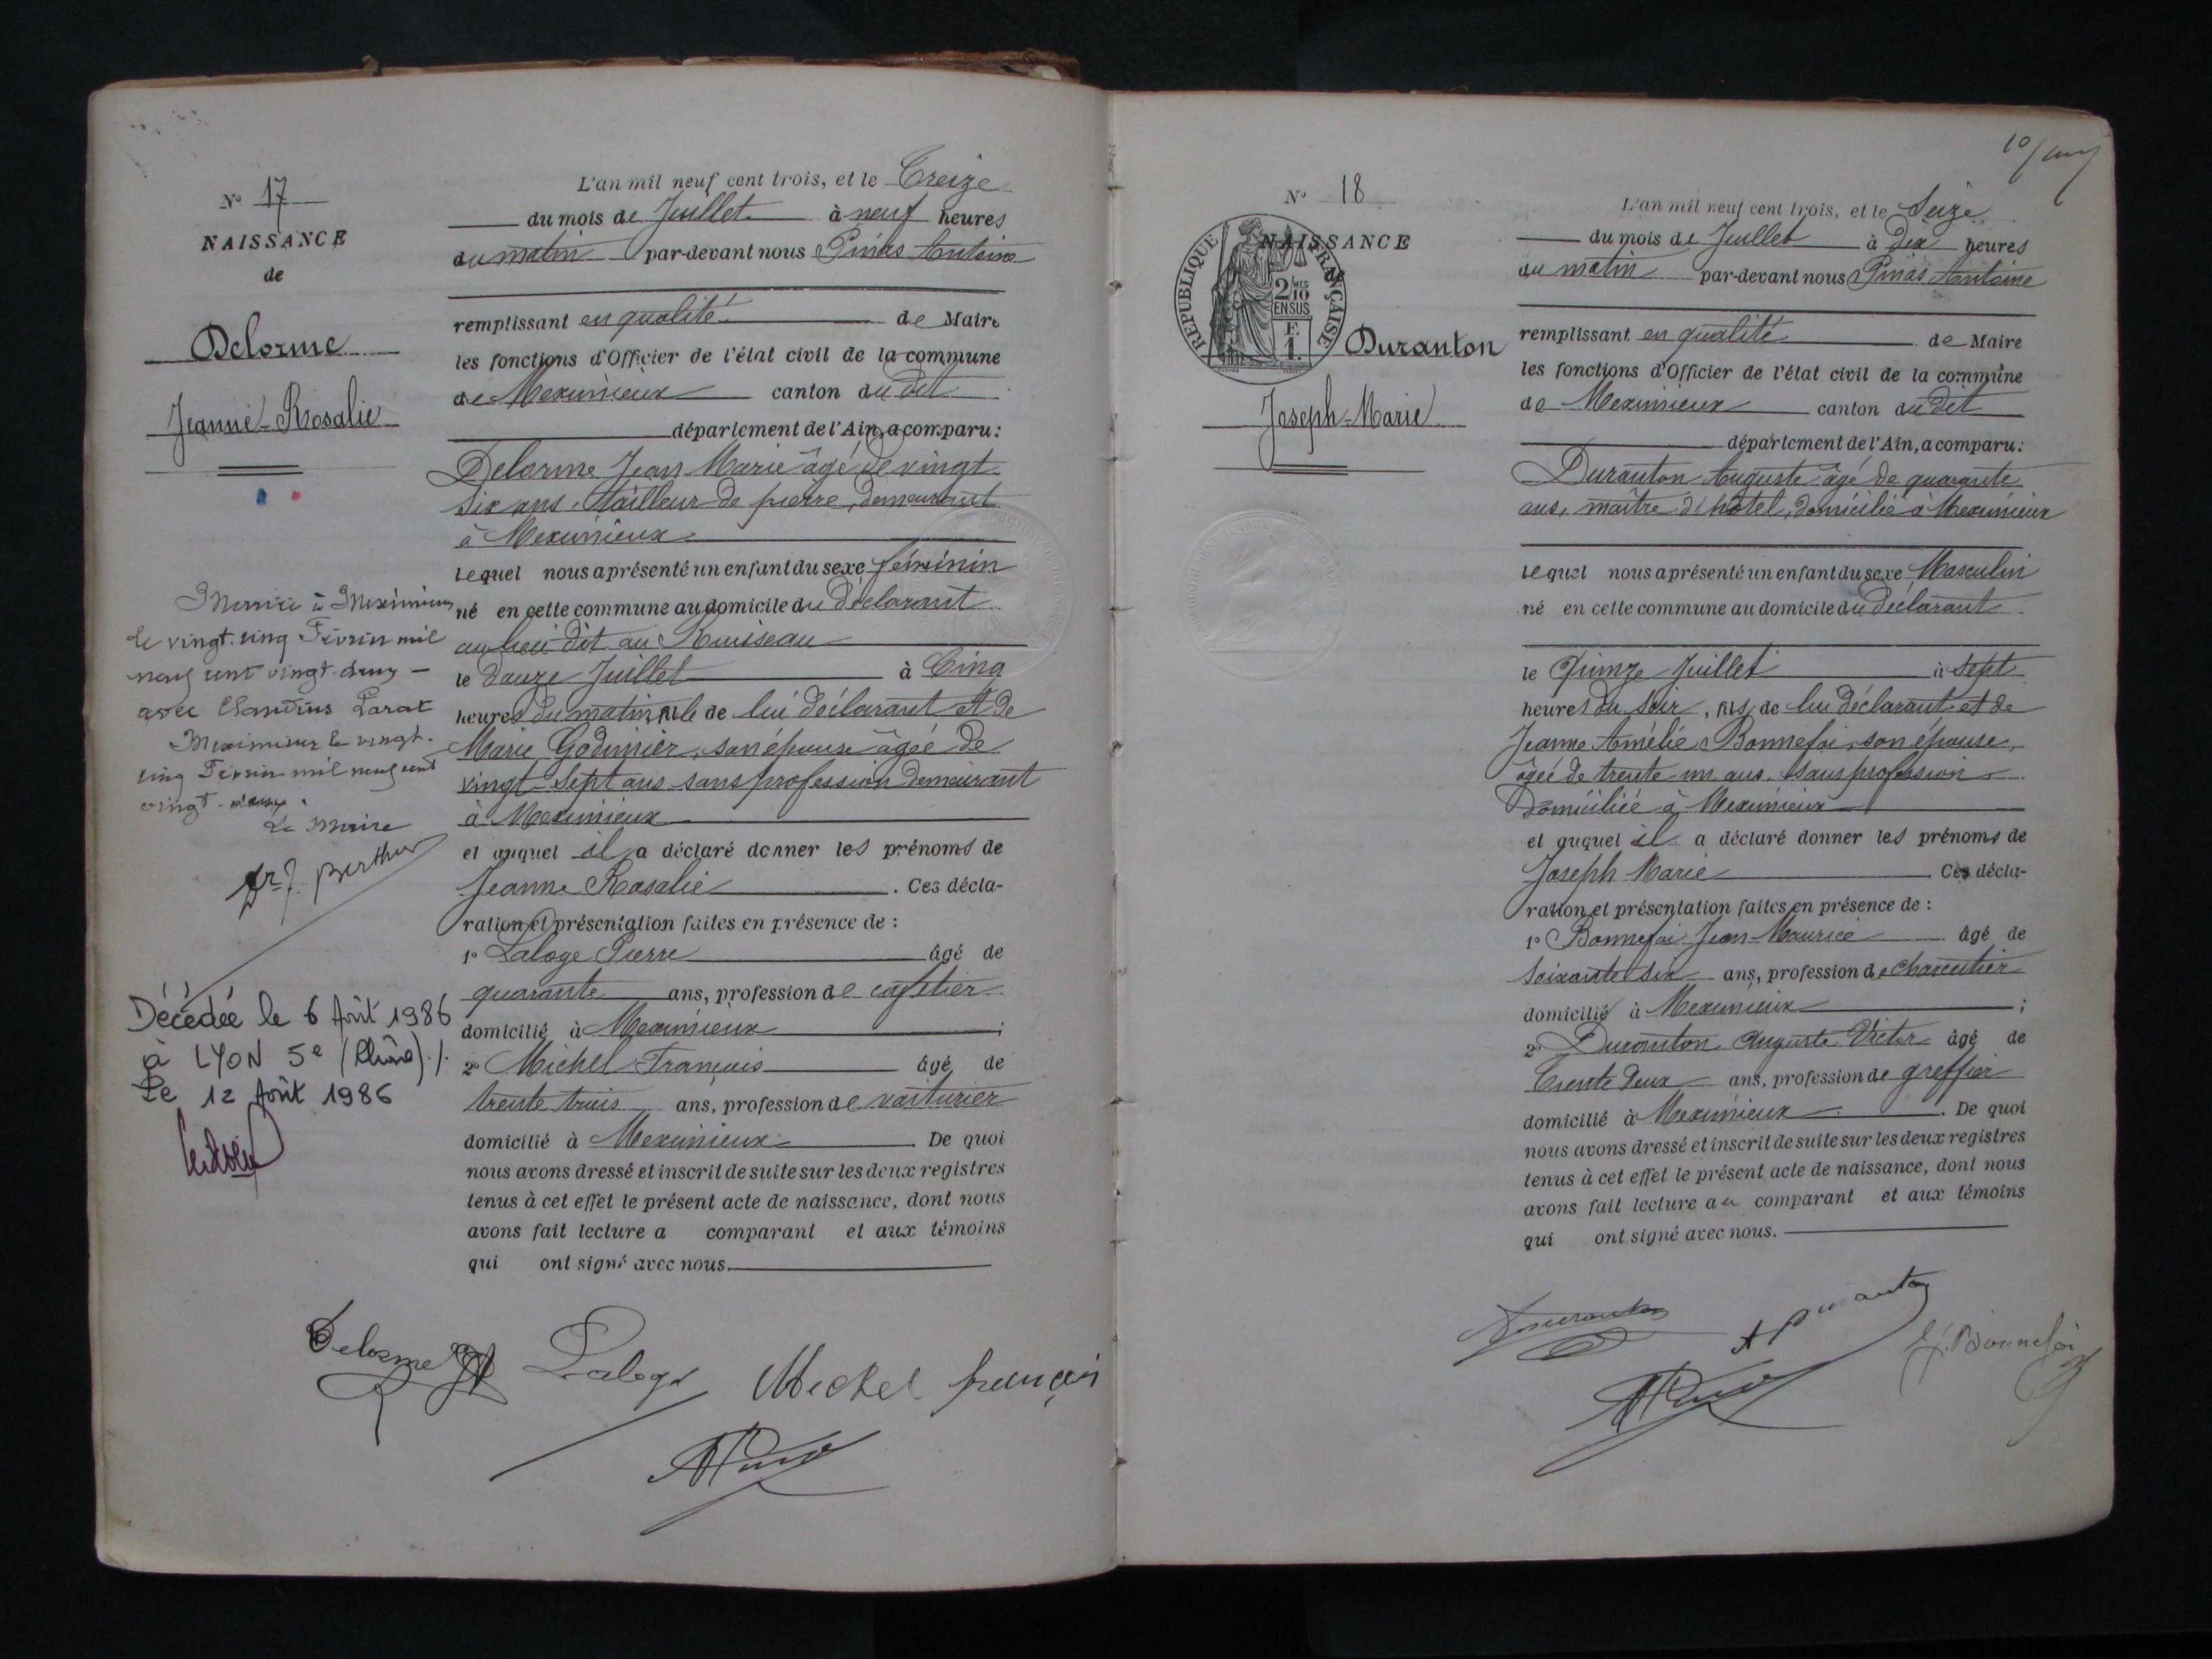 N° 17
NAISSANCE
de
Delorme
Jeanne-Rosalie
Mariée à Meximieux
le vingt-cinq Février mil
neuf cent vingt-deux —
avec Claudius Larat
Meximieux le vingt-
cinq Février mil neuf cent
vingt-deux.
Le Maire
Dr J. Berthier
Décédée le 6 Août 1986
à LYON 5e (Rhône)./.
Le 12 Août 1986
L'an mil neuf cent trois, et le Treize
du mois de Juillet à neuf heures
du matin par-devant nous Pinas Antoine
remplissant en qualité de Maire
les fonctions d'Officier de l'état civil de la commune
de Meximieux canton du dit
département de l'Ain, a comparu:
Delorme Jean Marie âgé de vingt
six ans, tailleur de pierre, demeurant
à Meximieux
lequel nous a présenté un enfant du sexe féminin
né en cette commune au domicile du déclarant
au lieu dit au Ruisseau
le douze Juillet à Cinq
heures du matin, fille de lui déclarant et de
Marie Godinier, son épouse âgée de
vingt-sept ans sans profession demeurant
à Meximieux
et auquel il a déclaré donner les prénoms de
Jeanne Rosalie. Ces décla-
ration et présentation faites en présence de :
1° Laloge Pierre âgé de
quarante ans, profession de cafetier
domicilié à Meximieux;
2° Michel François âgé de
trente trois ans, profession de voiturier
domicilié à Meximieux. De quoi
nous avons dressé et inscrit de suite sur les deux registres
tenus à cet effet le présent acte de naissance, dont nous
avons fait lecture a comparant et aux témoins
qui ont signé avec nous.
Delorme Laloge Michel françois
10/
N° 18
NAISSANCE
de
RÉPUBLIQUE FRANÇAISE
2/10 MES
EN SUS
F.
1.
Duranton
Joseph-Marie
L'an mil neuf cent trois, et le Seize
du mois de Juillet à dix heures
du matin par-devant nous Pinas Antoine
remplissant en qualité de Maire
les fonctions d'Officier de l'état civil de la commune
de Meximieux canton du dit
département de l'Ain, a comparu:
Duranton Auguste âgé de quarante
ans, maître d'hôtel, domicilié à Meximieux
lequel nous a présenté un enfant du sexe Masculin
né en cette commune au domicile du déclarant
le Quinze Juillet à sept
heures du soir, fils de lui déclarant et de
Jeanne Amélie Bonnefoi, son épouse,
âgée de trente un ans, sans profession
domiciliée à Meximieux
et auquel il a déclaré donner les prénoms de
Joseph Marie. Ces décla-
ration et présentation faites en présence de :
1° Bonnefoi Jean-Maurice âgé de
soixante six ans, profession de charcutier
domicilié à Meximieux;
2° Duranton Auguste Victor âgé de
Trente deux ans, profession de greffier
domicilié à Meximieux. De quoi
nous avons dressé et inscrit de suite sur les deux registres
tenus à cet effet le présent acte de naissance, dont nous
avons fait lecture au comparant et aux témoins
qui ont signé avec nous.
Duranton A Duranton J. Bonnefoi